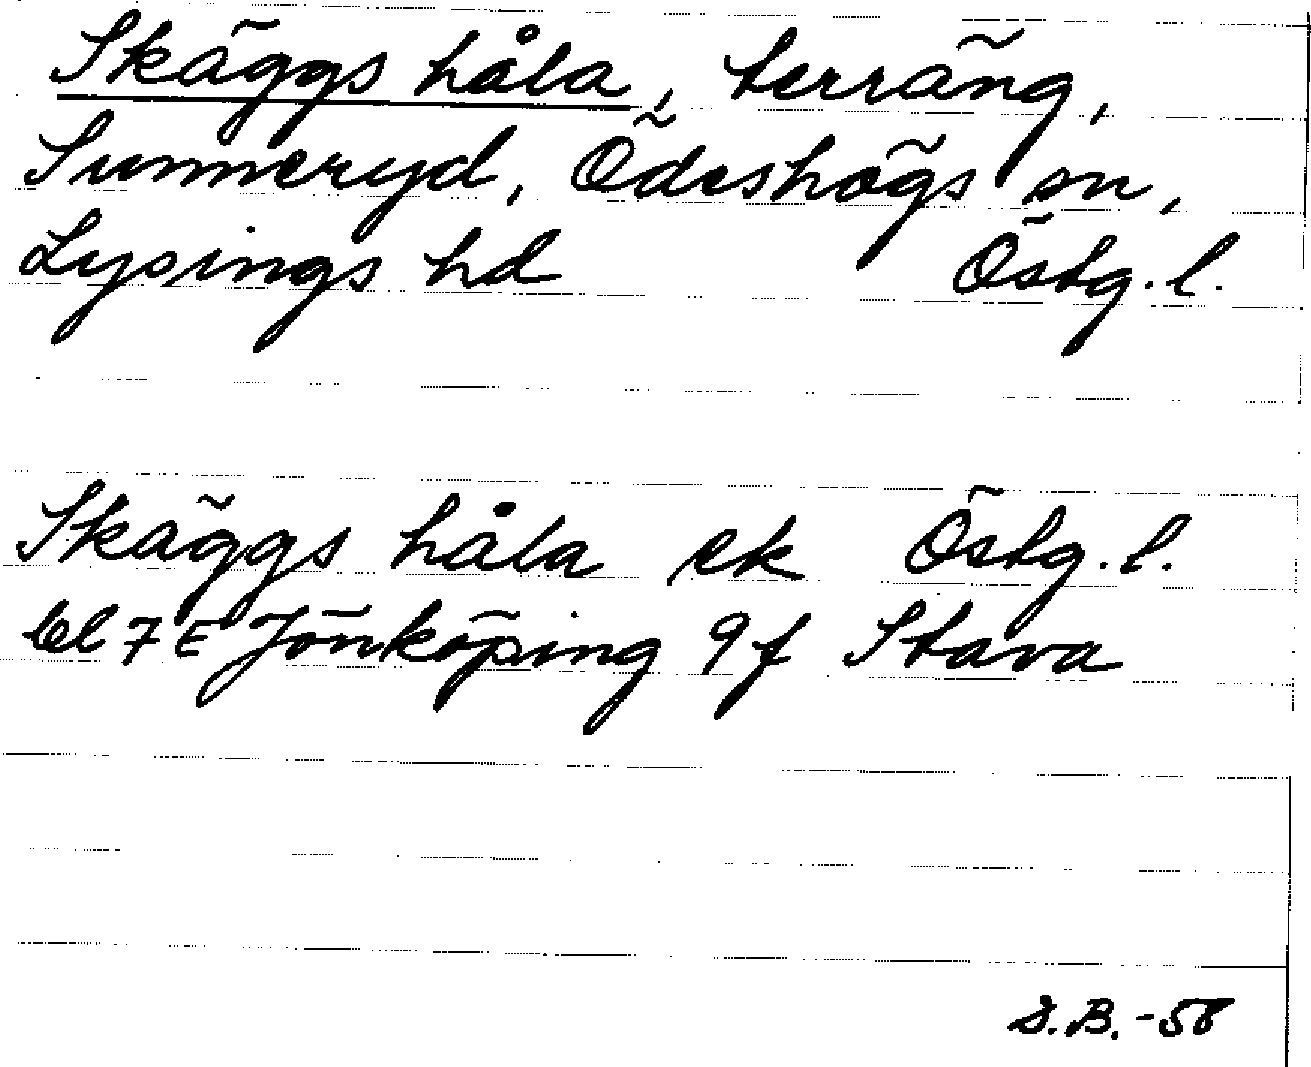 Skäggs håla, terräng,
Sunneryd, Ödeshögs sn,
Lysings hd Östg.l.
Skäggs håla ek Östg.l.
bl 7 E Jönköping 9f Stava
S.B.-58